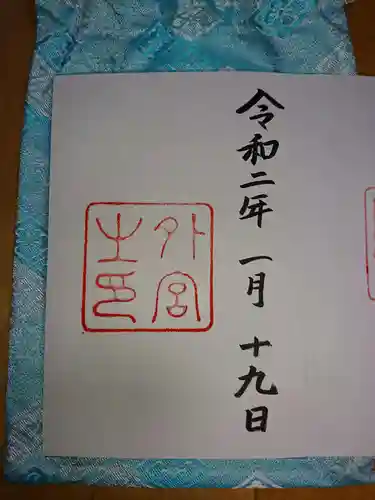 令和二年一月十九日
外宮
之印